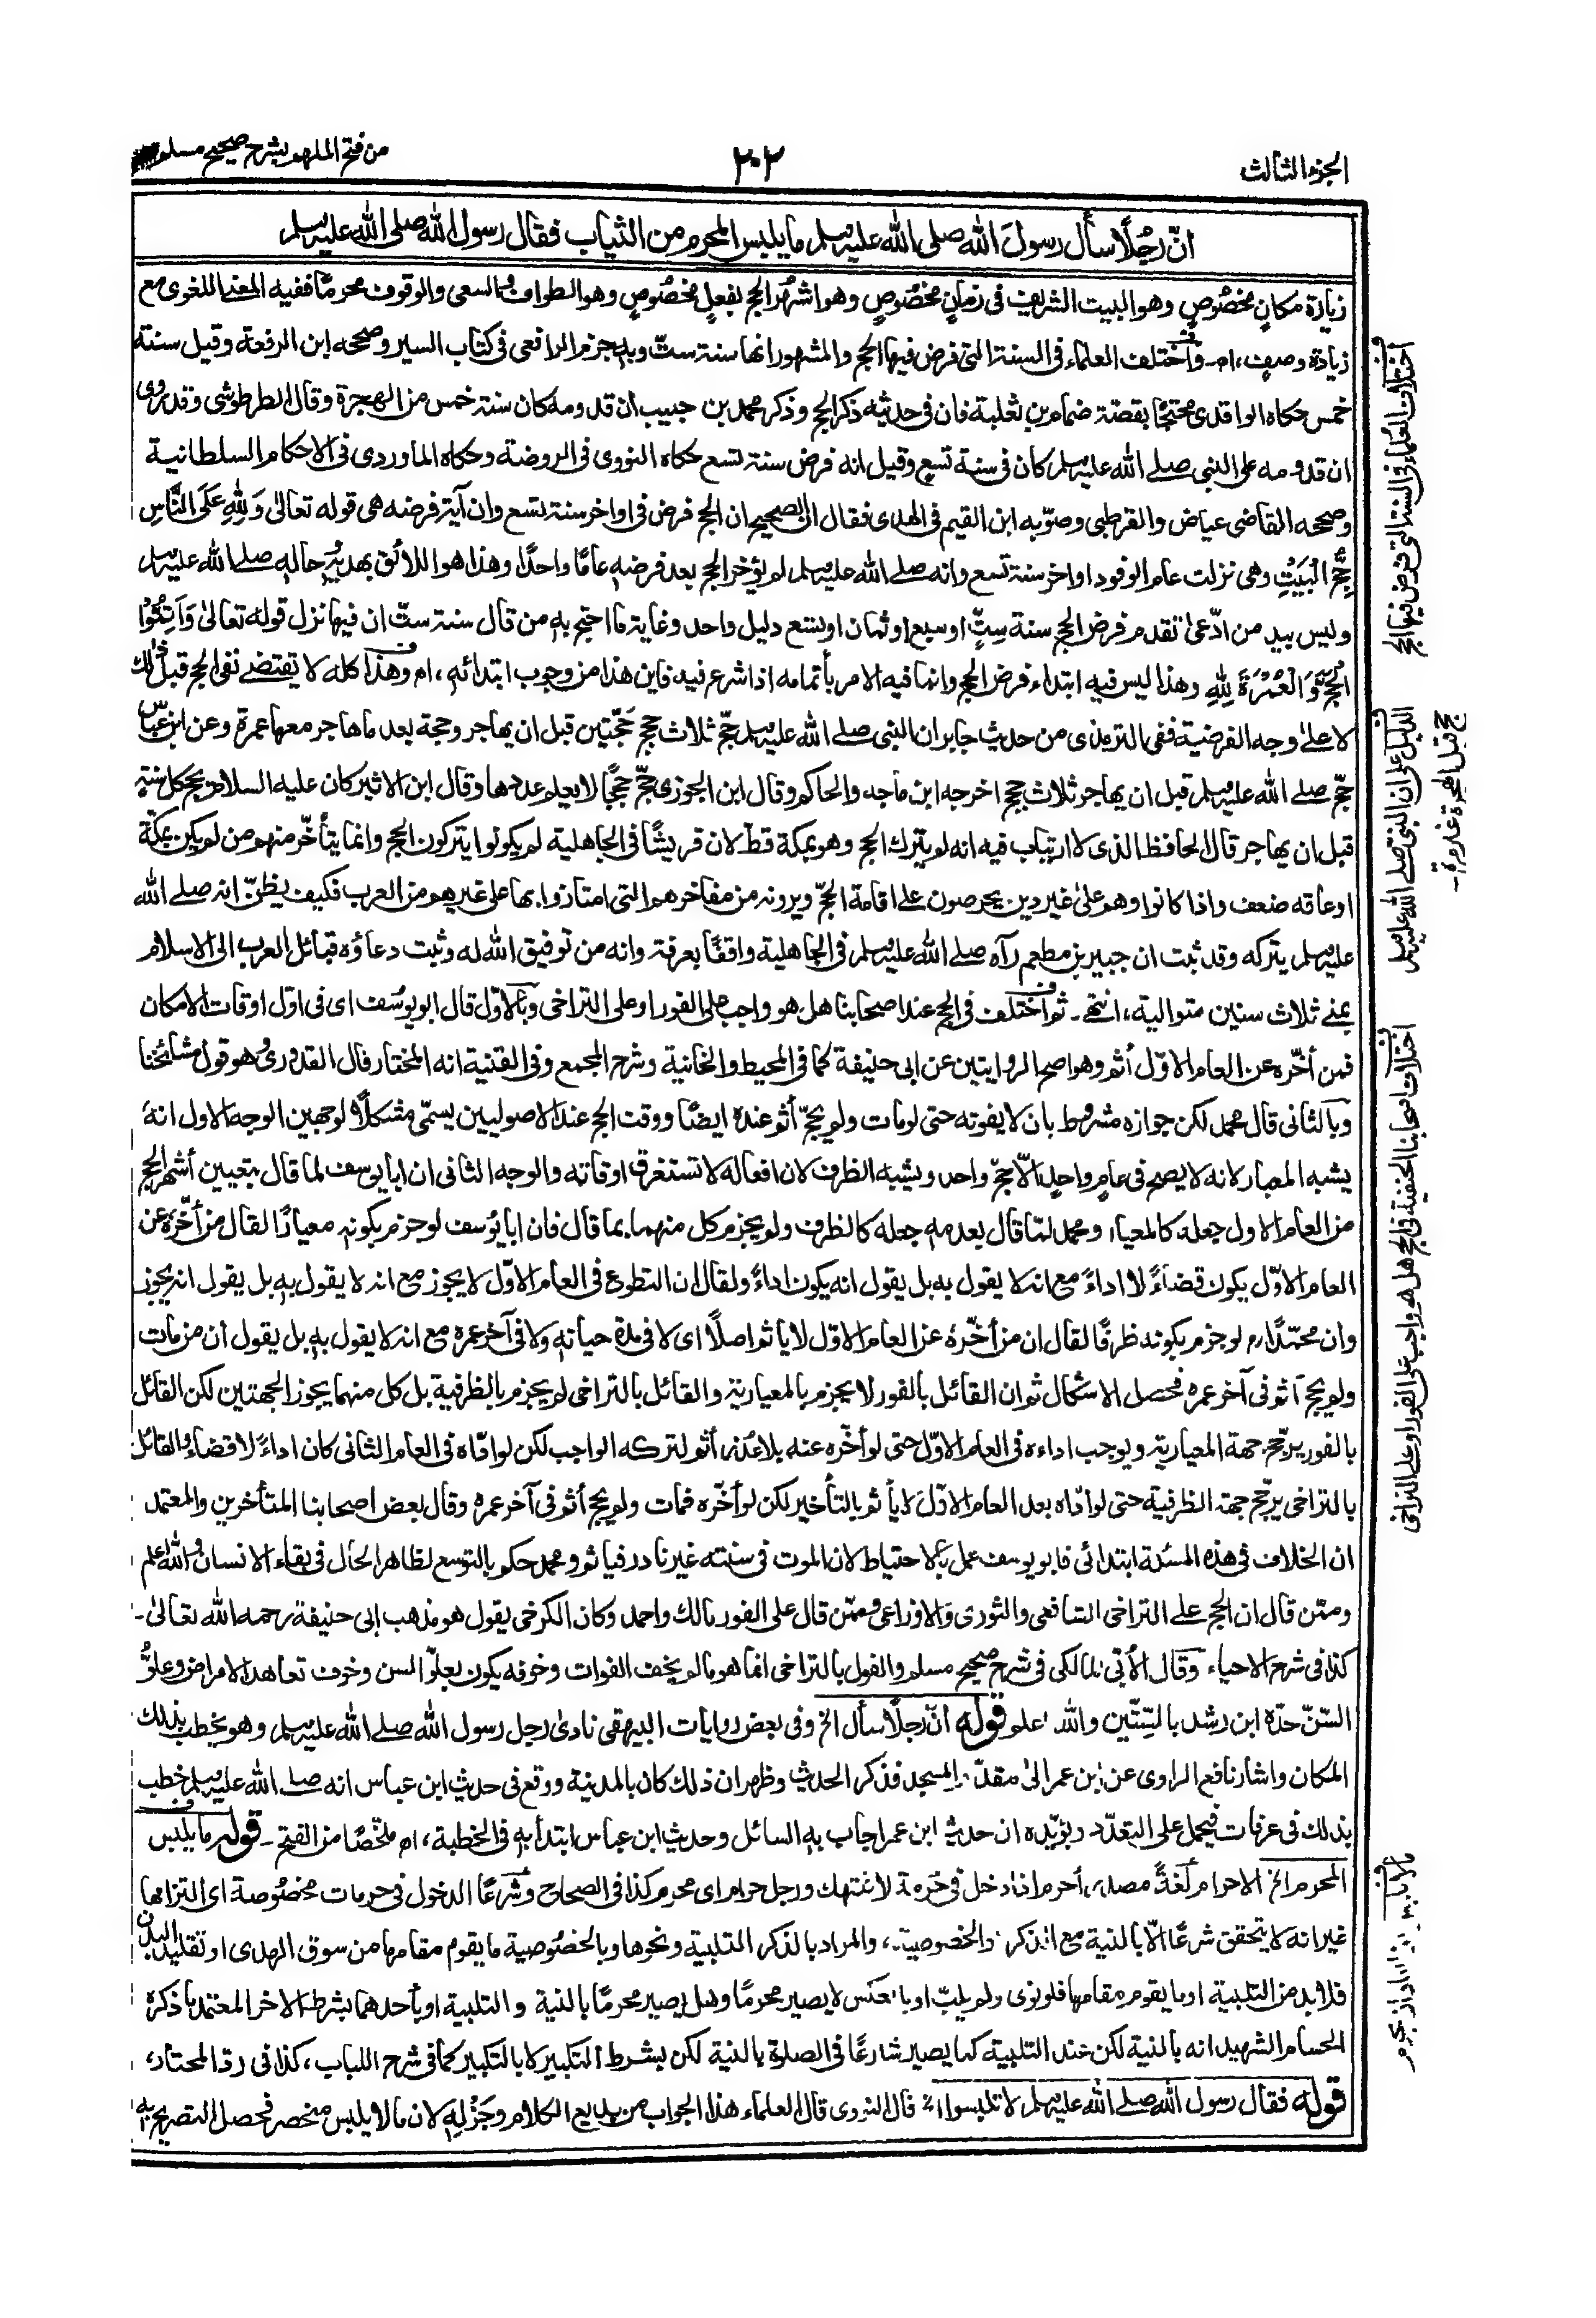 الجزء الثالث
٢٠٢
من فتح الملهم بشرح صحيح مسلم
انّ رجُلًا سأل رسولَ الله صلى الله عليه وسلم ما يلبس المحرم من الثياب فقال رسول الله صلى الله عليه وسلم
زيادة مكانٍ مخصُوصٍ وهو البيت الشريف في زمانٍ مخصُوصٍ وهو اشهُر الحج بفعلٍ مخصُوصٍ وهو الطواف والسعى والوقوف محرمًا ففيه المعنے اللغوى مع
زيادة وصفٍ، اھ۔ واختلف العلماء في السنة التي فرض فيها الحج والمشهور انها سنة ستّ وبه جزم الرافعى في كتاب السير وصححه ابن الرفعة وقيل سنة
خمس حكاه الواقدى محتجًا بقصّة ضمام بن ثعلبة فان في حديثه ذكر الحج وذكر محمد بن حبيب ان قدومه كان سنة خمس من الهجرة وقال الطرطوشى وقد روى
ان قدومه على النبى صلے الله عليه وسلم كان في سنة تسعٍ وقيل انه فرض سنة تسع حكاه النووى في الروضة وحكاه الماوردى في الاحكام السلطانية
وصححه القاضى عياض والقرطبى وصوّبه ابن القيم في الهدى فقال ان الصحيح ان الحج فرض في اواخر سنة تسع وان آية فرضه هى قوله تعالىٰ وَلِلّٰهِ عَلَى النَّاسِ
حِجُّ الْبَيْتِ وهى نزلت عام الوفود اواخر سنة تسع وانه صلے الله عليه وسلم لم يؤخر الحج بعد فرضه عامًا واحدًا وهذا هو اللائق بهديه وحاله صلے الله عليه وسلم
وليس بيد من ادّعىٰ تقدم فرض الحج سنة سِتٍّ او سبع او ثمان او تسع دليل واحد وغاية ما احتج به من قال سنة ستّ ان فيها نزل قوله تعالىٰ وَاَتِمُّوا
الْحَجَّ وَالْعُمْرَةَ لِلّٰهِ وهذا ليس فيه ابتداء فرض الحج وانما فيه الامر بأتمامه اذا شرع فيه فاين هذا من وجوب ابتدائه، اھ وهذا كله لا يقتضے نفى الحج قبل ذلك
لا علىٰ وجه الفرضية ففى الترمذى من حديث جابر ان النبى صلے الله عليه وسلم حجّ ثلاث حجج حَجّتين قبل ان يهاجر وحجة بعد ما هاجر معها عمرة وعن ابن عباس
حجّ صلے الله عليه وسلم قبل ان يهاجر ثلاث حجج اخرجه ابن ماجه والحاكم وقال ابن الجوزى حجّ حججًا لا يعلم عددها وقال ابن الاثير كان عليه السلام يحج كل سنة
قبل ان يهاجر قال الحافظ الذى لا ارتياب فيه انه لم يترك الحج وهو بمكة قطّ لان قريشًا في الجاهلية لم يكونوا يتركون الحج وانما يتأخّر منهم من لم يكن بمكّة
او عاقه ضعف واذا كانوا وهم علىٰ غير دين يحرصون على اقامة الحجّ ويرونه من مفاخرهم التى امتازوا بها على غيرهم من العرب فكيف يظنّ انه صلے الله
عليه وسلم يتركه وقد ثبت ان جبير بن مطعم رآه صلے الله عليه وسلم في الجاهلية واقفًا بعرفة وانه من توفيق الله له وثبت دعاؤه قبائل العرب الى الاسلام
بمنے ثلاث سنين متوالية، انتهى۔ ثم اختلف في الحج عند اصحابنا هل هو واجب على الفور او على التراخى وبالاوّل قال ابو يوسف اى في اوّل اوقات الامكان
فمن أخّره عن العام الاوّل أثم وهو اصح الروايتين عن ابى حنيفة كما في المحيط والخانية وشرح المجمع وفى القنية انه المختار قال القدورى وهو قول مشائخنا
وبالثانى قال محمد لكن جوازه مشروط بان لا يفوته حتى لو مات ولم يحجّ أثم عنده ايضًا ووقت الحج عند الاصوليين يسمّى مشكلًا لوجهين الوجه الاول انه
يشبه المعيار لانه لا يصح في عامٍ واحدٍ الّا حجّ واحد ويشبه الظرف لان افعاله لا تستغرق اوقاته والوجه الثانى ان ابا يوسف لما قال بتعيين أشهر الحج
من العام الاول جعله كالمعيار ومحمد لمّا قال بعدمه جعله كالظرف ولم يجزم كل منهما بما قال فان ابا يُوسف لو جزم بكونه معيارًا لقال من أخّره عن
العام الاوّل يكون قضاءً لا اداءً مع انه لا يقول به بل يقول انه يكون اداءً ولقال ان التطوع في العام الاوّل لا يجوز مع انه لا يقول به بل يقول انه يجوز
وان محمّدًا رم لو جزم بكونه ظرفًا لقال ان من أخّره عن العام الاوّل لا يأثم اصلًا اى لا في مدة حياته ولا في آخر عمره مع انه لا يقول به بل يقول ان من مات
ولم يحج أثم في آخر عمره فحصل الاشكال ثم ان القائل بالفور لا يجزم بالمعيارية والقائل بالتراخى لم يجزم بالظرفية بل كل منهما يجوز الجهتين لكن القائل
بالفور يرجّح جهة المعيارية ويوجب اداءه في العام الاوّل حتى لو أخّره عنه بلا عُذر أثم لتركه الواجب لكن لو ادّاه في العام الثانى كان اداءً لا قضاء والقائل
بالتراخى يرجّح جهة الظرفية حتى لو ادّاه بعد العام الاوّل لا يأثم بالتأخير لكن لو أخّره فمات ولم يحج أثم في آخر عمره وقال بعض اصحابنا المتأخرين والمعتمد
ان الخلاف في هذه المسئلة ابتدائى فابو يوسف عمل بالاحتياط لان الموت في سنته غير نادر فيأثم ومحمد حكم بالتوسع لظاهر الحال في بقاء الانسان والله اعلم
وممّن قال ان الحج على التراخى الشافعى والثورى والاوزاعى وممّن قال على الفور مالك واحمد وكان الكرخى يقول هو مذهب ابى حنيفة رحمه الله تعالىٰ۔
كذا في شرح الاحياء وقال الأُبّى المالكى في شرح صحيح مسلم والقول بالتراخى انما هو ما لم يخف الفوات وخوفه يكون بعلوّ السن وخوف تعاهد الامراض وعلوُّ
السّنّ حدّه ابن رشد بالسِّتّين والله اعلم قوله انّ رجلًا سأل الخ وفى بعض روايات البيهقى نادىٰ رجل رسول الله صلے الله عليه وسلم وهو يخطب بذلك
المكان واشار نافع الراوى عن ابن عمر الىٰ مقدّم المسجد فذكر الحديث وظهر ان ذلك كان بالمدينة ووقع في حديث ابن عباس انه صلے الله عليه وسلم خطب
بذلك في عرفات فيحمل على التعدّد ويؤيّده ان حديث ابن عمر اجاب به السائل وحديث ابن عباس ابتدأ به في الخطبة، اھ ملخّصًا من الفتح۔ قوله ما يلبس
المحرم الخ الاحرام لُغةً مصدر أحرم اذا دخل في حُرمة لا تنتهك ورجل حرام اى محرم كذا في الصحاح وشرعًا الدخول في حرمات مخصُوصة اى التزامها
غير انه لا يتحقق شرعًا الّا بالنية مع الذكر والخصوصية، والمراد بالذكر التلبية ونحوها وبالخصُوصية ما يقوم مقامها من سوق الهدى او تقليد البدن
فلا بد من التلبية او ما يقوم مقامها فلو نوى ولم يلبّ او بالعكس لا يصير محرمًا وهل يصير محرمًا بالنية والتلبية او بأحدهما بشرط الاخر المعتمد ما ذكره
الحسام الشهيد انه بالنية لكن عند التلبية كما يصير شارعًا في الصلوة بالنية لكن بشرط التكبير لا بالتكبير كما في شرح اللباب، كذا في ردّ المحتار،
قوله فقال رسول الله صلے الله عليه وسلم لا تلبسوا الخ قال النووى قال العلماء هذا الجواب من بديع الكلام وجَزْلِه لان ما لا يلبس منحصر فحصل التصريح به
اختلاف العلماء في السنة التي فرض فيها الحج
الدليل على ان النبى صلے الله عليه وسلم
حج قبل الهجرة غير مرة۔
اختلاف اصحابنا الحنفية في الحج هل هو واجب على الفور او على التراخى